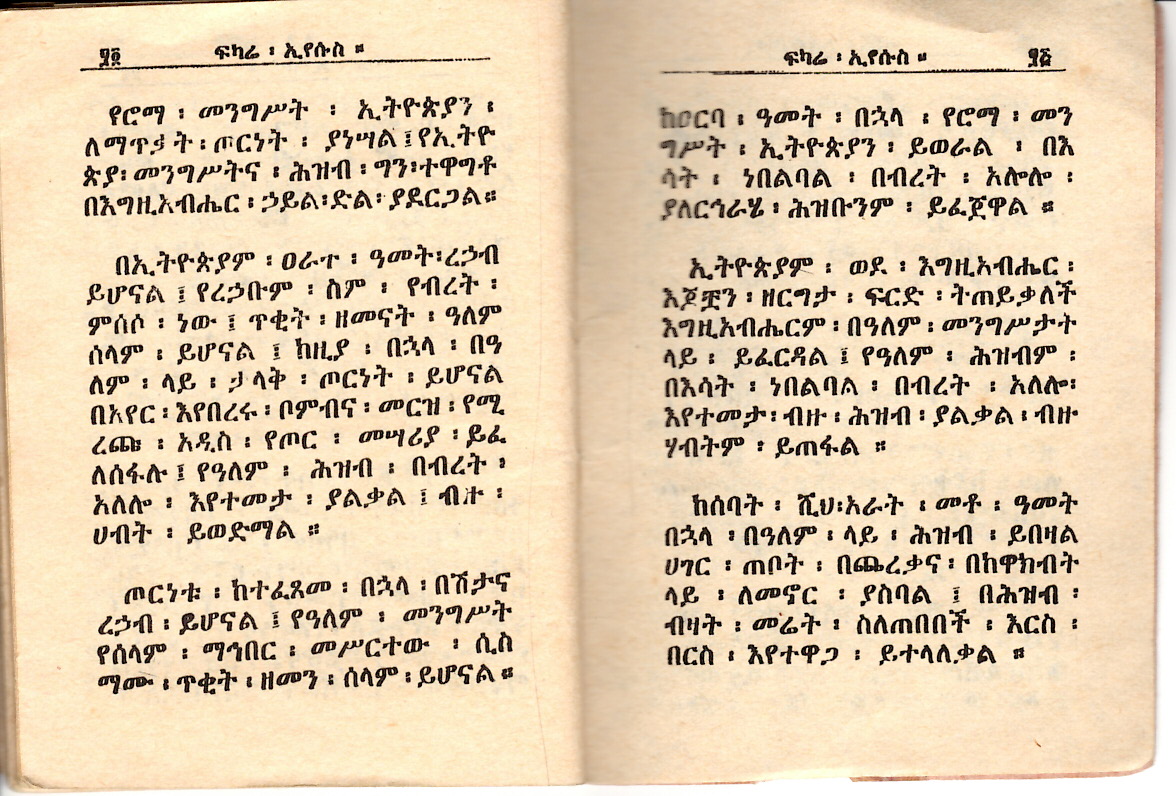 ፶፬ ፍካሬ ፡ ኢየሱስ ።
የሮማ ፡ መንግሥት ፡ ኢትዮጵያን ፡
ለማጥቃት ፡ ጦርነት ፡ ያነሣል ፤ የኢትዮ
ጵያ ፡ መንግሥትና ፡ ሕዝብ ፡ ግን ፡ ተዋግቶ
በእግዚአብሔር ፡ ኃይል ፡ ድል ፡ ያደርጋል ።
በኢትዮጵያም ፡ ዐራተ ፡ ዓመት ፡ ረኃብ
ይሆናል ፤ የረኃቡም ፡ ስም ፡ የብረት ፡
ምሰሶ ፡ ነው ፤ ጥቂት ፡ ዘመናት ፡ ዓለም
ሰላም ፡ ይሆናል ፤ ከዚያ ፡ በኋላ ፡ በዓ
ለም ፡ ላይ ፡ ታላቅ ፡ ጦርነት ፡ ይሆናል
በአየር ፡ እየበረሩ ፡ ቦምብና ፡ መርዝ ፡ የሚ
ረጩ ፡ አዲስ ፡ የጦር ፡ መሣሪያ ፡ ይፈ
ለሰፋሉ ፤ የዓለም ፡ ሕዝብ ፡ በብረት ፡
አለሎ ፡ እየተመታ ፡ ያልቃል ፤ ብዙ ፡
ሀብት ፡ ይወድማል ።
ጦርነቱ ፡ ከተፈጸመ ፡ በኋላ ፡ በሽታና
ረኃብ ፡ ይሆናል ፤ የዓለም ፡ መንግሥት
የሰላም ፡ ማኅበር ፡ መሥርተው ፡ ሲስ
ማሙ ፡ ጥቂት ፡ ዘመን ፡ ሰላም ፡ ይሆናል ።
ፍካሬ ፡ ኢየሱስ ። ፶፭
ከዐርባ ፡ ዓመት ፡ በኋላ ፡ የሮማ ፡ መን
ግሥት ፡ ኢትዮጵያን ፡ ይወራል ፡ በእ
ሳት ፡ ነበልባል ፡ በብረት ፡ አሎሎ ፡
ያለርኅራሄ ፡ ሕዝቡንም ፡ ይፈጀዋል ።
ኢትዮጵያም ፡ ወደ ፡ እግዚአብሔር ፡
እጆቿን ፡ ዘርግታ ፡ ፍርድ ፡ ትጠይቃለች
እግዚአብሔርም ፡ በዓለም ፡ መንግሥታት
ላይ ፡ ይፈርዳል ፤ የዓለም ፡ ሕዝብም ፡
በእሳት ፡ ነበልባል ፡ በብረት ፡ አለሎ ፡
እየተመታ ፡ ብዙ ፡ ሕዝብ ፡ ያልቃል ፡ ብዙ
ሃብትም ፡ ይጠፋል ።
ከሰባት ፡ ሺህ ፡ አራት ፡ መቶ ፡ ዓመት
በኋላ ፡ በዓለም ፡ ላይ ፡ ሕዝብ ፡ ይበዛል
ሀገር ፡ ጠቦት ፡ በጨረቃና ፡ በከዋክብት
ላይ ፡ ለመኖር ፡ ያስባል ፤ በሕዝብ ፡
ብዛት ፡ መሬት ፡ ስለጠበበች ፡ እርስ ፡
በርስ ፡ እየተዋጋ ፡ ይተላለቃል ።